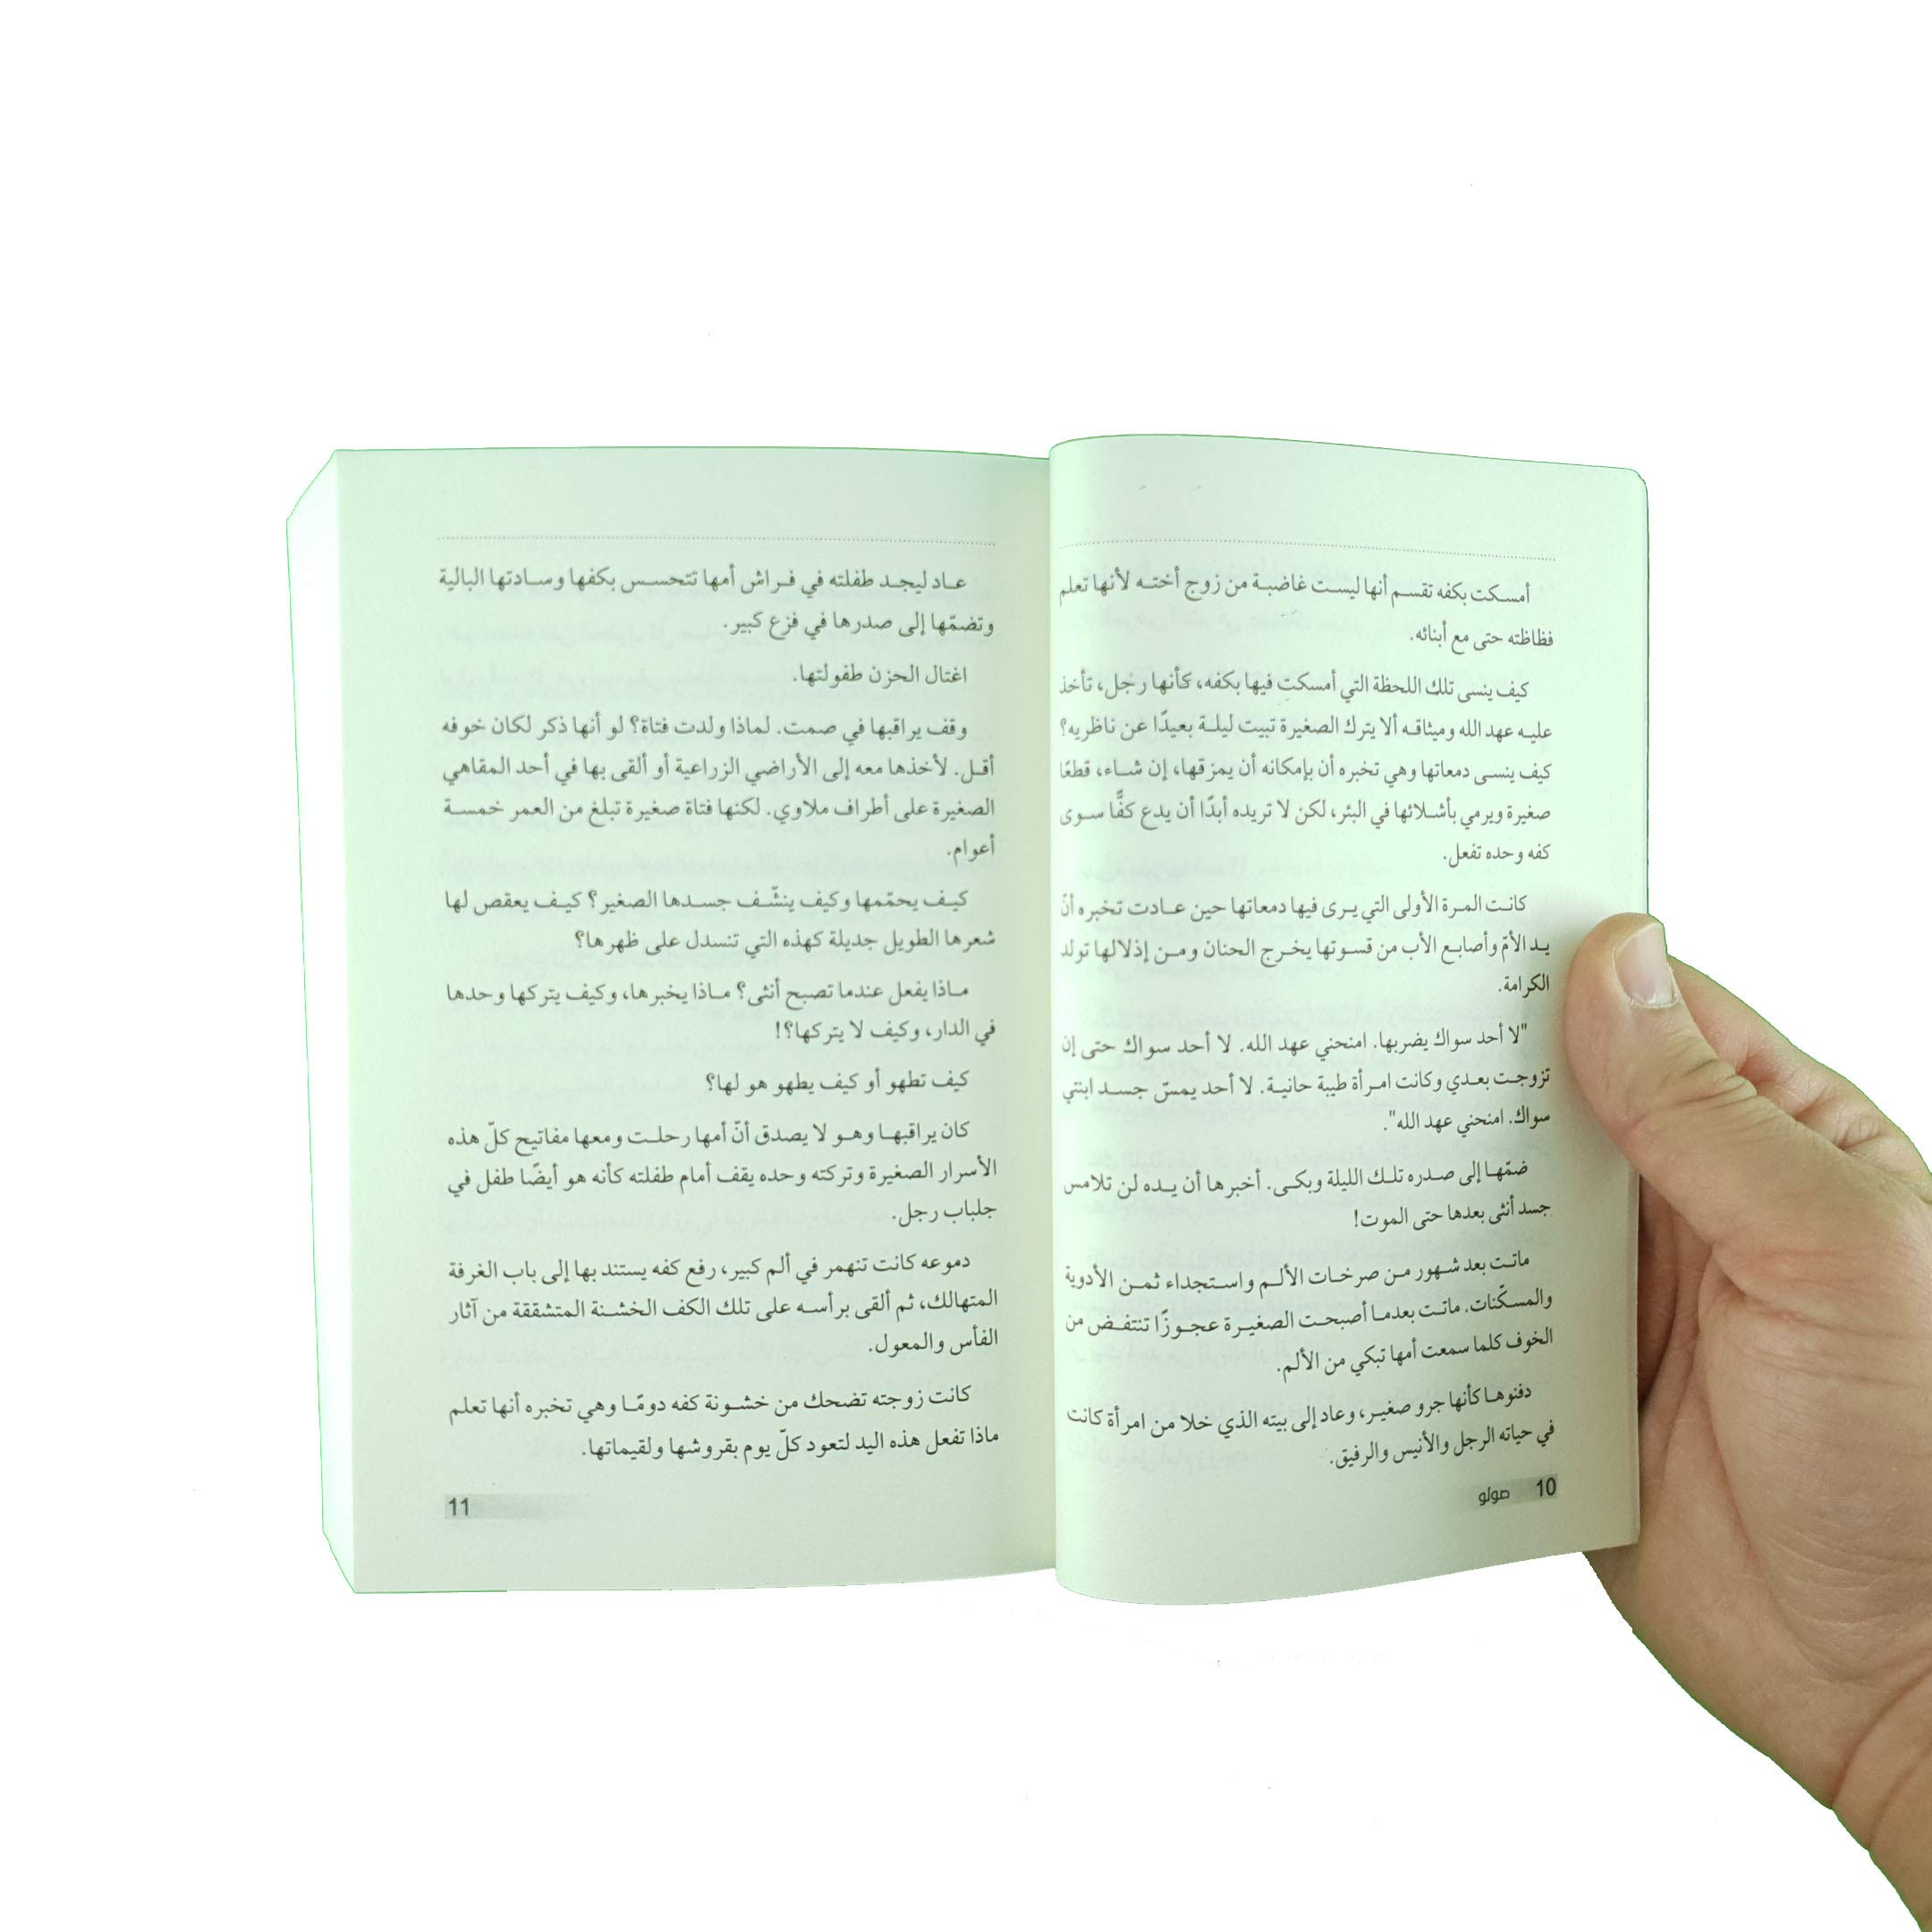 أمسكت بكفه تقسم أنها ليست غاضبة من زوج أخته لأنها تعلم
فظاظته حتى مع أبنائه.
كيف ينسى تلك اللحظة التي أمسكت فيها بكفه، كأنها رجل، تأخذ
عليه عهد الله وميثاقه ألا يترك الصغيرة تبيت ليلة بعيدًا عن ناظريه؟
كيف ينسى دمعاتها وهي تخبره أن بإمكانه أن يمزقها، إن شاء، قطعًا
صغيرة ويرمي بأشلائها في البئر، لكن لا تريده أبدًا أن يدع كفًّا سوى
كفه وحده تفعل.
كانت المرة الأولى التي يرى فيها دمعاتها حين عادت تخبره أنّ
يد الأمّ وأصابع الأب من قسوتها يخرج الحنان ومن إذلالها تولد
الكرامة.
"لا أحد سواك يضربها. امنحني عهد الله. لا أحد سواك حتى إن
تزوجت بعدي وكانت امرأة طيبة حانية. لا أحد يمسّ جسد ابنتي
سواك. امنحني عهد الله".
ضمّها إلى صدره تلك الليلة وبكى. أخبرها أن يده لن تلامس
جسد أنثى بعدها حتى الموت!
ماتت بعد شهور من صرخات الألم واستجداء ثمن الأدوية
والمسكّنات. ماتت بعدما أصبحت الصغيرة عجوزًا تنتفض من
الخوف كلما سمعت أمها تبكي من الألم.
دفنوها كأنها جرو صغير، وعاد إلى بيته الذي خلا من امرأة كانت
في حياته الرجل والأنيس والرفيق.
10 صولو
عاد ليجد طفلته في فراش أمها تتحسس بكفها وسادتها البالية
وتضمّها إلى صدرها في فزع كبير.
اغتال الحزن طفولتها.
وقف يراقبها في صمت. لماذا ولدت فتاة؟ لو أنها ذكر لكان خوفه
أقل. لأخذها معه إلى الأراضي الزراعية أو ألقى بها في أحد المقاهي
الصغيرة على أطراف ملاوي. لكنها فتاة صغيرة تبلغ من العمر خمسة
أعوام.
كيف يحمّمها وكيف ينشّف جسدها الصغير؟ كيف يعقص لها
شعرها الطويل جديلة كهذه التي تنسدل على ظهرها؟
ماذا يفعل عندما تصبح أنثى؟ ماذا يخبرها، وكيف يتركها وحدها
في الدار، وكيف لا يتركها؟!
كيف تطهو أو كيف يطهو هو لها؟
كان يراقبها وهو لا يصدق أنّ أمها رحلت ومعها مفاتيح كلّ هذه
الأسرار الصغيرة وتركته وحده يقف أمام طفلته كأنه هو أيضًا طفل في
جلباب رجل.
دموعه كانت تنهمر في ألم كبير، رفع كفه يستند بها إلى باب الغرفة
المتهالك، ثم ألقى برأسه على تلك الكف الخشنة المتشققة من آثار
الفأس والمعول.
كانت زوجته تضحك من خشونة كفه دومًا وهي تخبره أنها تعلم
ماذا تفعل هذه اليد لتعود كلّ يوم بقروشها ولقيماتها.
11